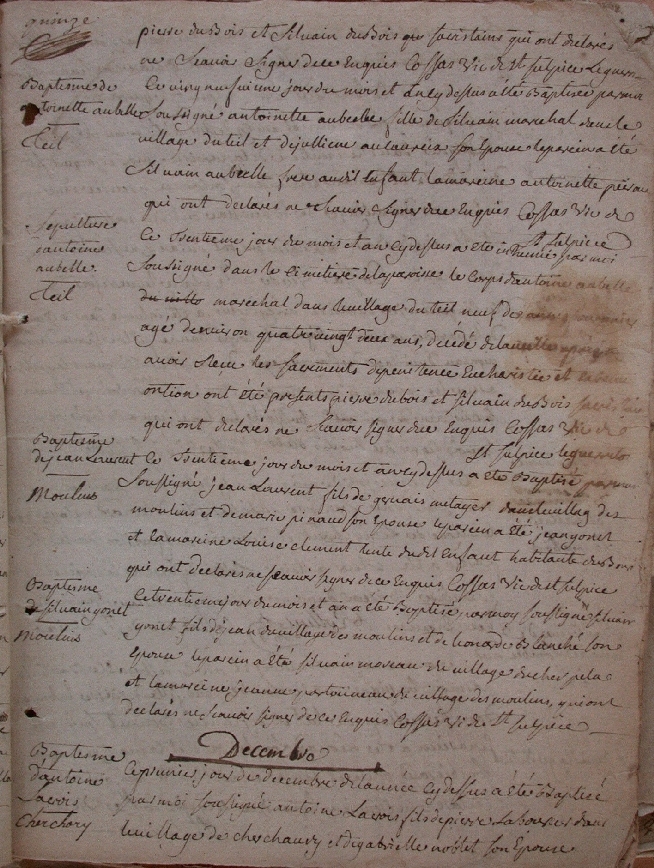 quinze
pierre duBois et Silvain duBois qui sacristains qui ont declarés
ne Scavoir Signer de ce Enquis Cossas Vic de St Sulpice
Baptesme de
antoinette aubelle
Teil
Ce vingt neufvieme jour du mois et an cy dessus a été Baptisée par moi
Soussigné antoinette aubelle fille de Silvain marechal dans le
village du teil et de jullienne son Epouse le parein a été
Silvain aubelle frere audit Enfant la mareine antoinette
qui ont declarés ne Scavoir Signer de ce Enquis Cossas Vic de
St Sulpice
Sepulture
dantoine
aubelle
Teil
Ce Trentieme jour du mois et an cy dessus a été inhumé par moi
Soussigné dans le Cimetiere de la paroisse le Corps dantoine aubelle
marechal dans le village du teil
agé denviron quatre vingt deux ans, décédé de la
avoir Reçu les Sacrements de penitence Eucharistie et extreme
ontion ont été presents pierre dubois et Silvain duBois
qui ont declarés ne Scavoir Signer de ce Enquis Cossas Vic de
St Sulpice
Baptesme
de jean Laurent
Moulins
Ce Trentieme jour du mois et an cy dessus a été Baptisé par moi
Soussigné jean Laurent fils de gervais metayer dans le village des
moulins et de marie pinaud son Epouse le parein a été jean gonet
et la mareine Louise clement tente du dit Enfant habitante du
qui ont declarés ne Scavoir Signer de ce Enquis Cossas Vic de St Sulpice
Baptesme
de Silvain gonet
Moulins
Ce trentieme jour du mois et an a été Baptisé par moy Soussigné Silvain
gonet fils de jean du village des moulins et de leonarde Blanché Son
Epouse le parein a été Silvain moreau du village du
et la mareine jeanne du village des moulins, qui ont
declarés ne Scavoir Signer de ce Enquis Cossas Vic de St Sulpice
Decembre
Baptesme
d'antoine
Lacois
Cherchory
Ce premier jour de decembre de lannée cy dessus a été Baptisé
par moi Soussigné antoine Lacois fils de pierre Laboureur dans
le village de cherchaury et de gabrielle Son Epouse